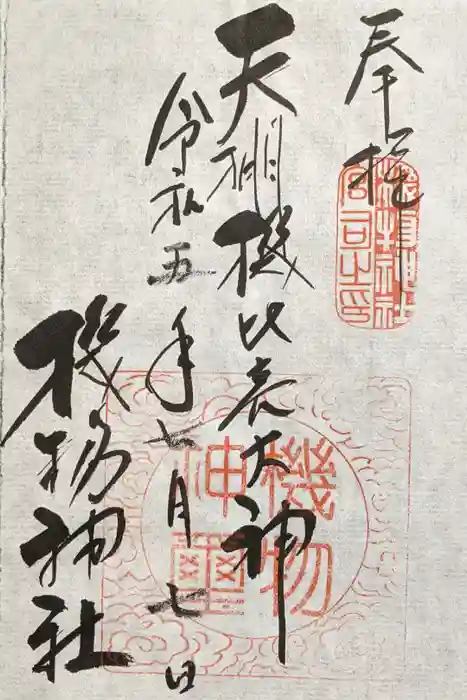 奉拝
天棚機比売大神
令和五年七月七日
機物神社
機物神社宮司之印
機物神